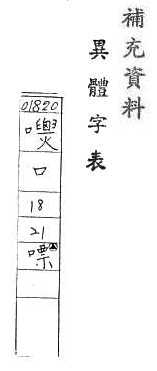 補充資料
異體字表
01820
口
18
21
嘌